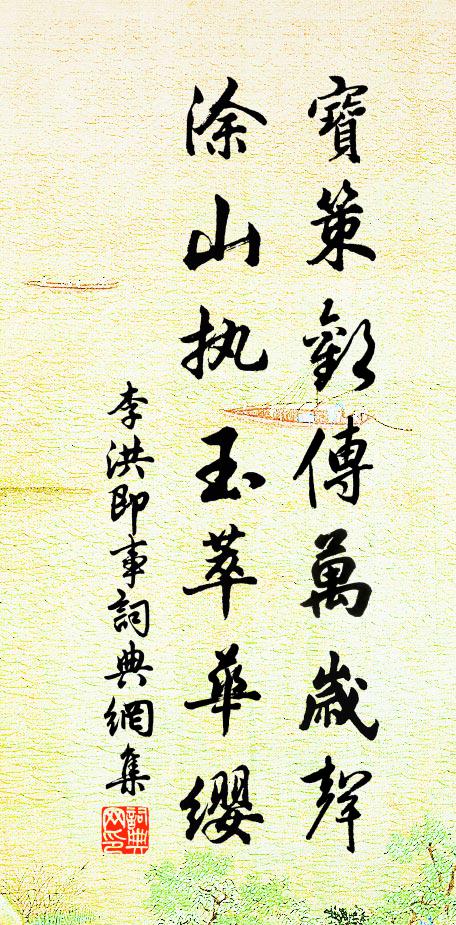 寶策歡傳萬歲聲
涂山执玉萃華纓
李洪即事詞典網集
詞典网印